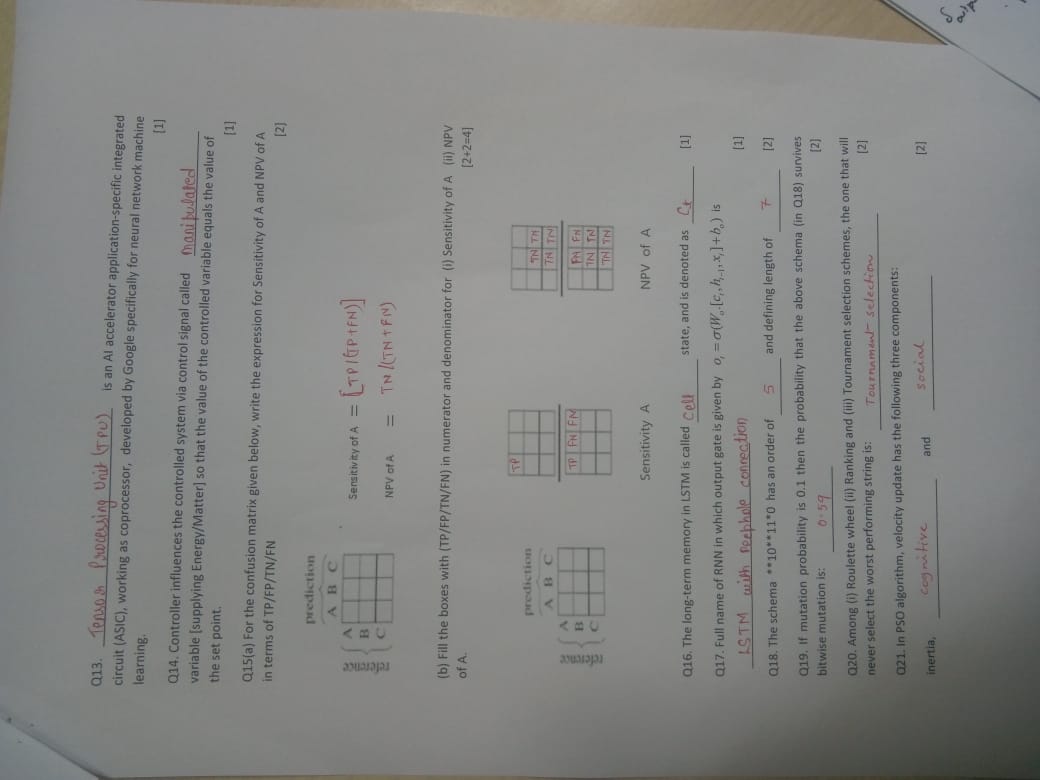 Q13. Tensor Processing Unit (TPU) is an AI accelerator application-specific integrated
circuit (ASIC), working as coprocessor, developed by Google specifically for neural network machine
learning.
[1]
Q14. Controller influences the controlled system via control signal called manipulated
variable [supplying Energy/Matter] so that the value of the controlled variable equals the value of
the set point.
[1]
Q15(a) For the confusion matrix given below, write the expression for Sensitivity of A and NPV of A
in terms of TP/FP/TN/FN
[2]
prediction
A B C
reference
A
B
C
Sensitivity of A = [TP/(TP+FN)]
NPV of A = TN/(TN+FN)
(b) Fill the boxes with (TP/FP/TN/FN) in numerator and denominator for (i) Sensitivity of A (ii) NPV
of A.
[2+2=4]
prediction
A B C
reference
A
B
C
TP
TP FN FN
Sensitivity A
TN TN
TN TN
FN FN
TN TN
TN TN
NPV of A
Q16. The long-term memory in LSTM is called cell state, and is denoted as Ct [1]
Q17. Full name of RNN in which output gate is given by oₜ = σ(Wₒ.[cₜ,hₜ₋₁,xₜ]+bₒ) is
LSTM with peephole connection [1]
Q18. The schema **10**11*0 has an order of 5 and defining length of 7 [2]
Q19. If mutation probability is 0.1 then the probability that the above schema (in Q18) survives
bitwise mutation is: 0.59 [2]
Q20. Among (i) Roulette wheel (ii) Ranking and (iii) Tournament selection schemes, the one that will
never select the worst performing string is: Tournament selection [2]
Q21. In PSO algorithm, velocity update has the following three components:
inertia, cognitive and social [2]